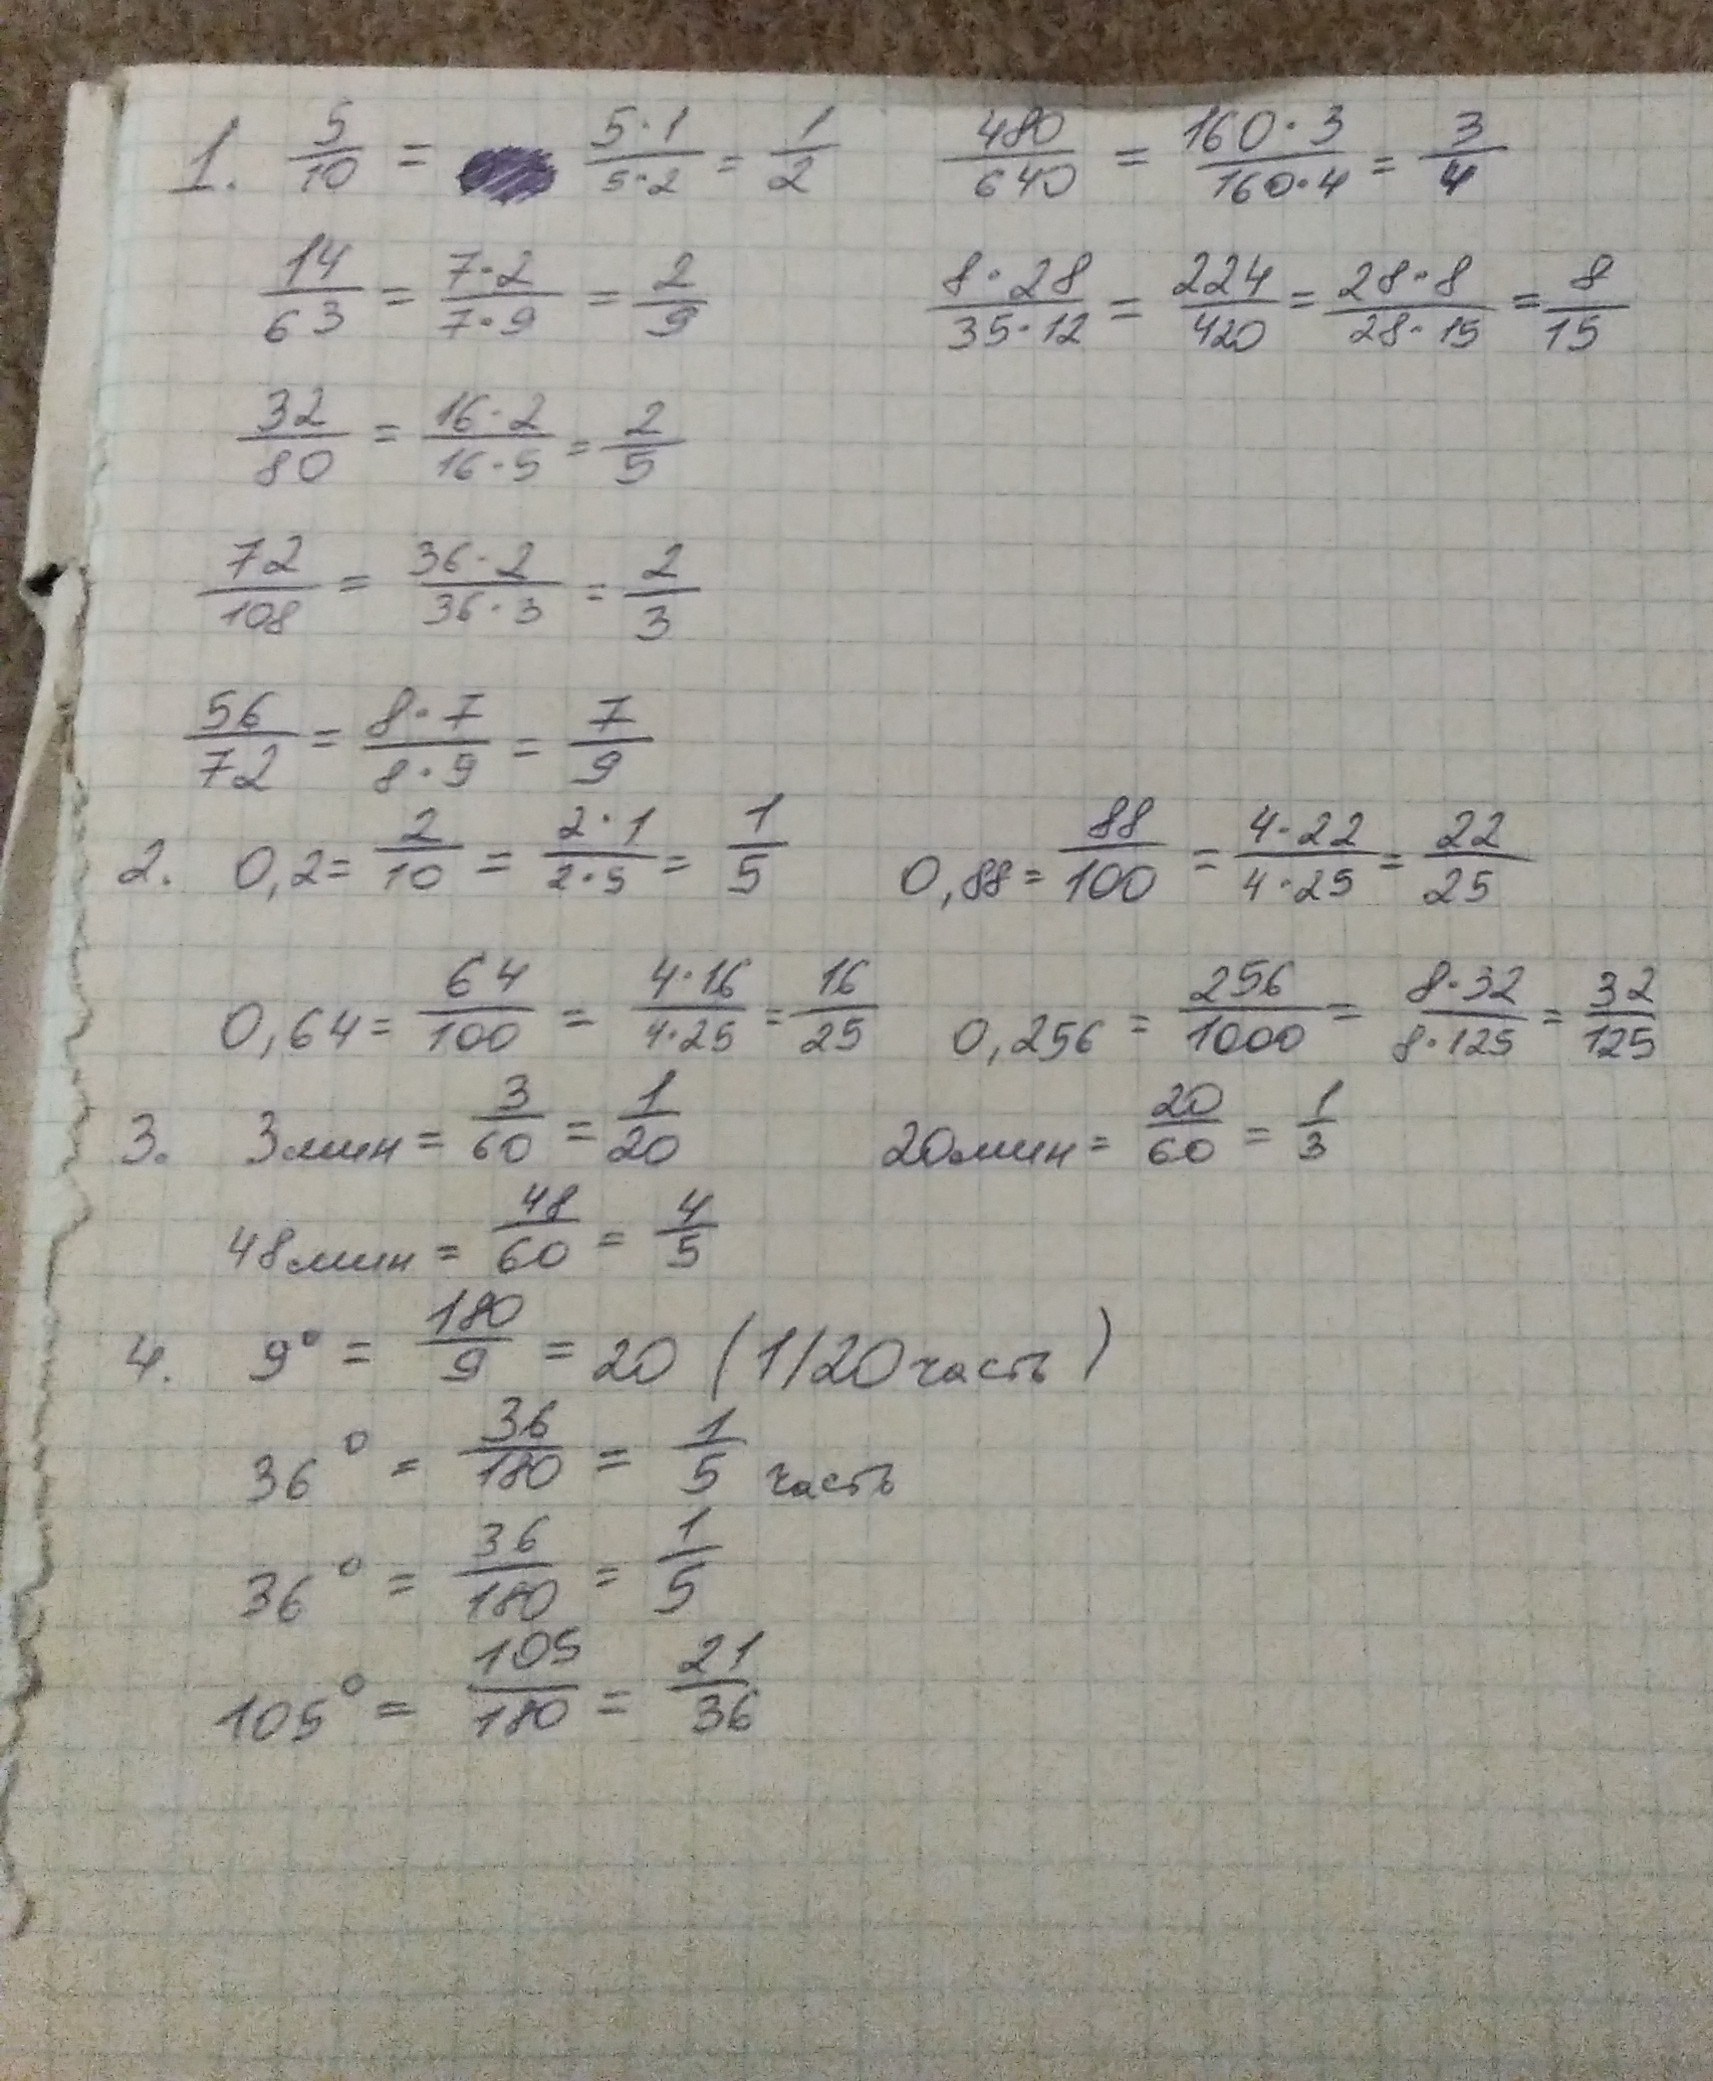 1. 5/10 = 5·1/5·2 = 1/2 480/640 = 160·3/160·4 = 3/4
14/63 = 7·2/7·9 = 2/9 8·28/35·12 = 224/420 = 28·8/28·15 = 8/15
32/80 = 16·2/16·5 = 2/5
72/108 = 36·2/36·3 = 2/3
56/72 = 8·7/8·9 = 7/9
2. 0,2 = 2/10 = 2·1/2·5 = 1/5 0,88 = 88/100 = 4·22/4·25 = 22/25
0,64 = 64/100 = 4·16/4·25 = 16/25 0,256 = 256/1000 = 8·32/8·125 = 32/125
3. 3мин = 3/60 = 1/20 20мин = 20/60 = 1/3
48мин = 48/60 = 4/5
4. 9° = 180/9 = 20 (1/20 часть)
36° = 36/180 = 1/5 часть
36° = 36/180 = 1/5
105° = 105/180 = 21/36